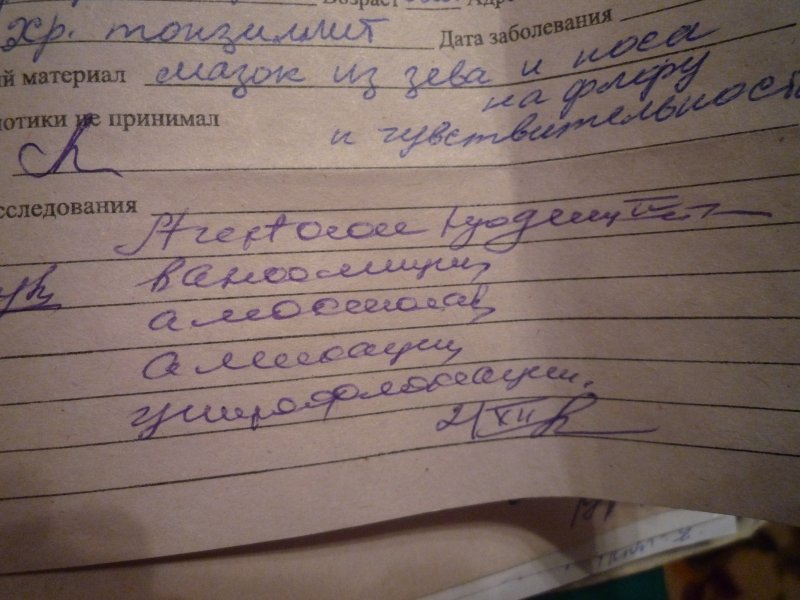 Возраст
Хр. тонзиллит Дата заболевания
ий материал мазок из зева и носа
на флору
иотики не принимал
и чувствительность
сследования
ванкомицин
амоксиклав
амикацин
ципрофлоксацин.
21/XII